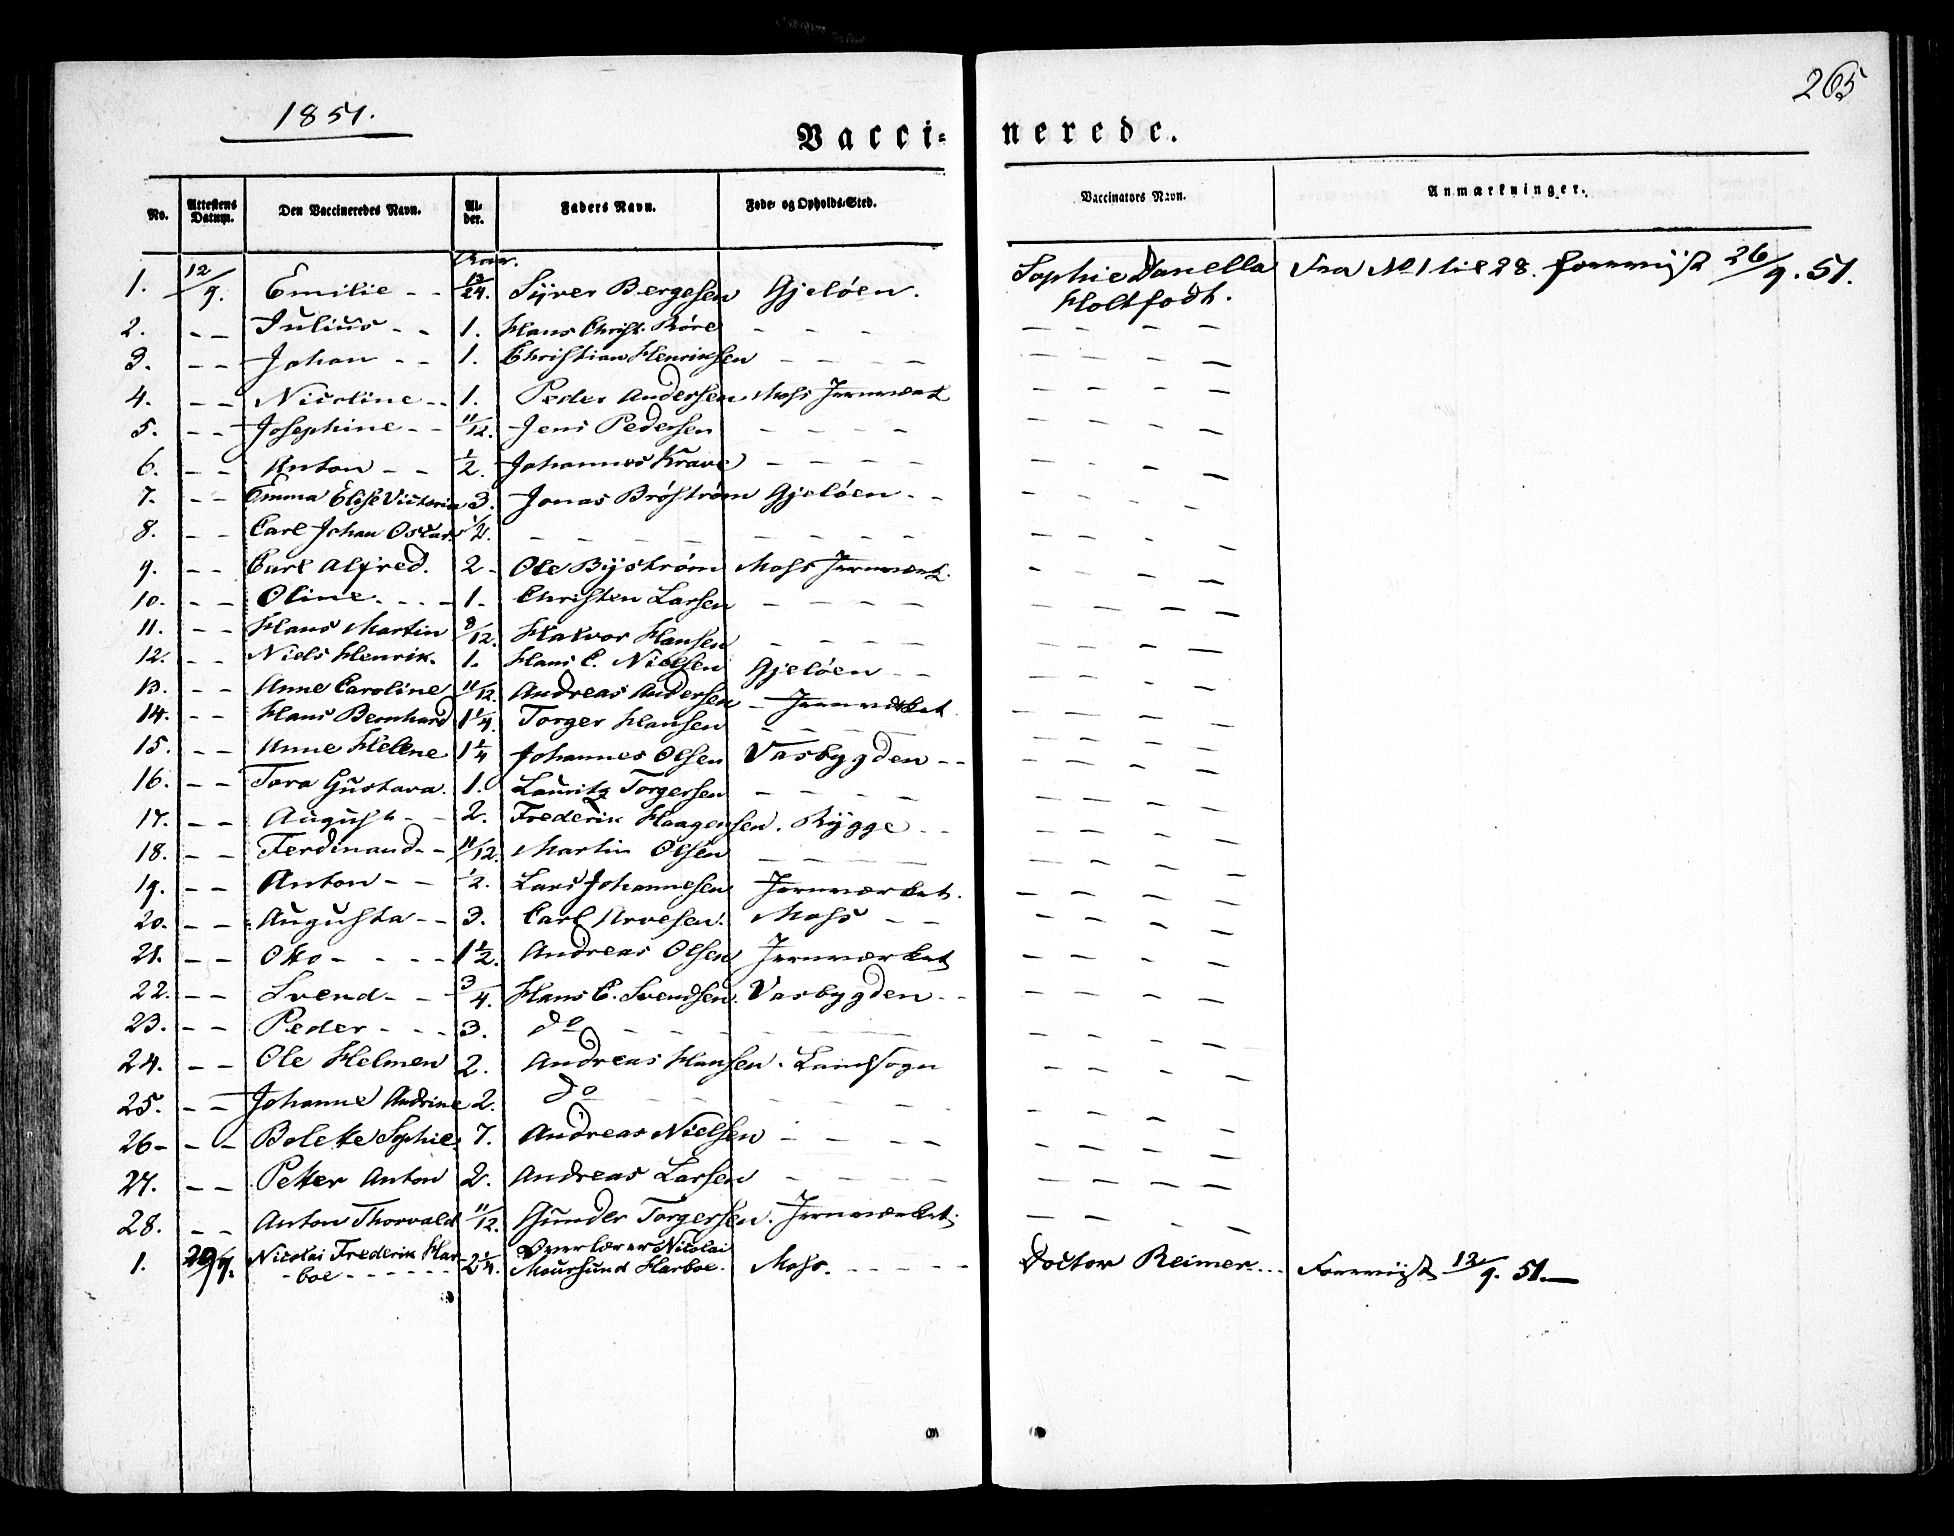 265
1851.
Vacci= nerede.
No. Attestens Datum. Den Vaccineredes Navn. Al- der. Faders Navn. Føde- og Opholds-Sted. Vaccinators Navn. Anmærkninger.
Aar.
1. 12/9. Emilie - - 13/24. Syver Bergesen Gjeløen. Sophie Danella Fra No 1 til 28. foreviist 26/9. 51.
Holtfodt.
2. - - Julius - - 1. Hans Christ. Røre - - - - - - - -
3. - - Johan - - 1. Christian Henriksen - - - - - - - -
4. - - Nicoline - - 1. Peder Andersen Moss Jernværk - - - -
5. - - Josephine - - 11/12. Jens Pedersen - - - - - - - -
6. - - Anton - - 1/2. Johannes Krave - - - - - - - -
7. - - Emma Elise Victoria 3. Jonas Brøstrøm Gjeløen - - - - - -
8. - - Carl Johan Oscar 1/2. - - - - - - - - - - - -
9. - - Carl Alfred. 2 - Ole Byström Moss Jernværk. - - - -
10. - - Oline - - - - 1. Christen Larsen - - - - - - - -
11. - - Hans Martin 8/12. Halvor Hansen - - - - - - - -
12. - - Niels Henrik. 1. Hans C. Nielsen Gjeløen - - - - - -
13. - - Anne Caroline 11/12. Andreas Andersen - Jernværket - - - -
14. - - Hans Bernhard 1 1/4. Torger Hansen - - - - - -
15. - - Anne Helene 1 1/4 Johannes Olsen Vasbygden - - - - - -
16. - - Tora Gustava. 1. Lauritz Torgersen - - - - - - - -
17. - - August - - 2. Frederik Haagensen. Rygge - - - - - -
18. - - Ferdinand - - 11/12. Martin Olsen - - - - - - - -
19. - - Anton - - 1/2. Lars Johannesen Jernværket. - - - -
20. - - Augusta - - 3. Carl Arvesen. Moss - - - - - -
21. - - Otto - - - - 1 1/2. Andreas Olsen Jernværket - - - -
22. - - Svend - - 3/4. Hans C. Svendsen. Vasbygden - - - - - -
23. - - Peder - - - 3. do - - - - - - - - - -
24. - - Ole Helmen 2. Andreas Hansen. Landsogn - - - -
25. - - Johanne Andrine 2. do - - - - - - - - - -
26 - - - Bolette Sophie. 7. Andreas Nielsen - - - - - - - -
27. - - Petter Anton 2. Andreas Larsen - - - - - - - -
28. - - Anton Thorvald 11/12. Gunder Torgersen. Jernværket. - - - -
1. 29/7. Nicolai Frederik Har- 2 1/4. Overlærer Nicolai Moss. - - - - - Doctor Reimer - - - Foreviist 12/9. 51. —
- boe - - - - - Moursund Harboe.